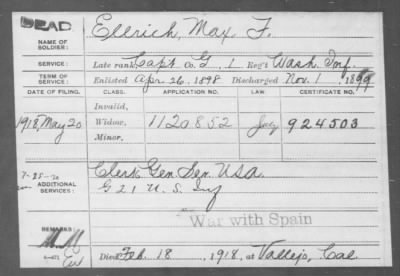 DEAD
NAME OF SOLDIER: Ellrich, Max F.
SERVICE: Late rank, Capt Co. G, 1 Reg't Wash. Inf.
TERM OF SERVICE: Enlisted Apr. 26, 1898 Discharged Nov. 1, 1899
DATE OF FILING. CLASS. APPLICATION NO. CERTIFICATE NO.
Invalid,
1918, May 20 Widow, 1120852 924503
Minor,
7-25-
Clerk Gen. Ser. U.S.A.
ADDITIONAL SERVICES: G 21 U. S. Inf
War with Spain
REMARKS
Died Feb. 18, 1918, at Vallejo, Cal